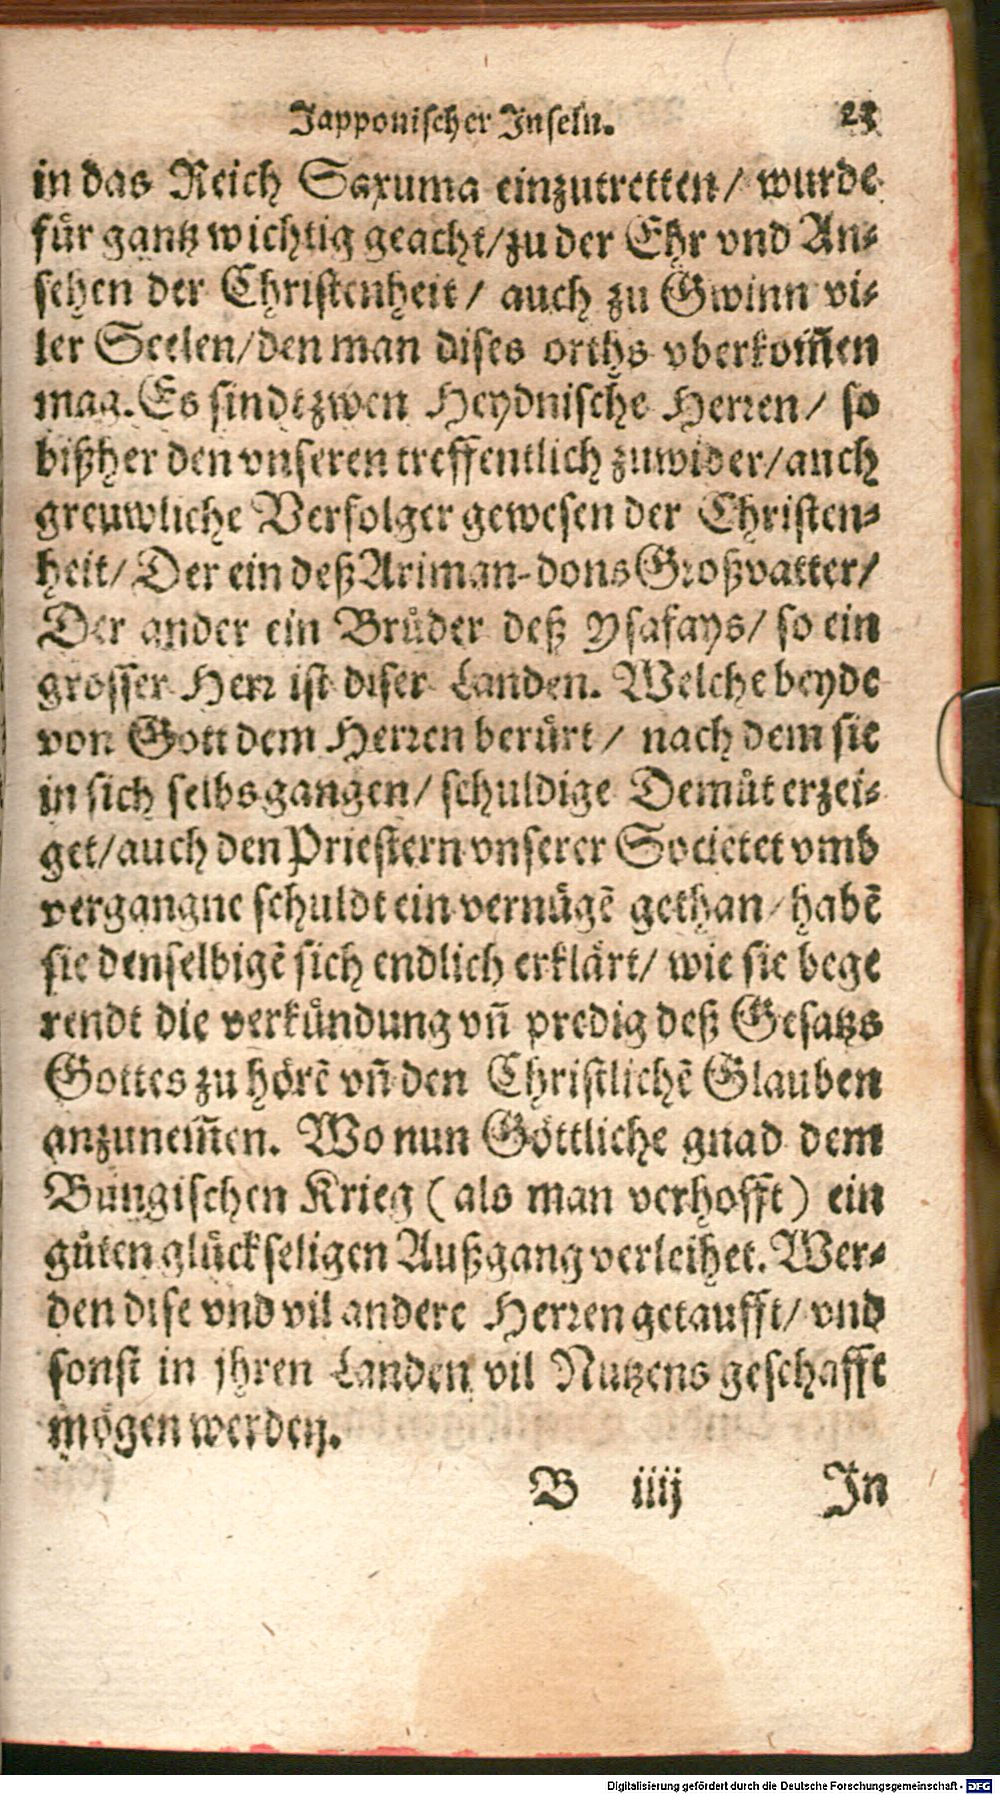 Japponischer Jnseln. 23
in das Reich Saxuma einzutretten/ wurde
für gantz wichtig geacht/zu der Ehr vnd An⸗
sehen der Christenheit/ auch zu Gwinn vi⸗
ler Seelen/den man dises orths vberkom̃en
mag. Es sindt zwen Heydnische Herren/ so
bißher den vnseren treffentlich zuwider/auch
greuwliche Verfolger gewesen der Christen⸗
heit/ Der ein deß Ariman-dons Großvatter/
Der ander ein Bruͦder deß Ysafays/ so ein
grosser Herr ist diser Landen. Welche beyde
von Gott dem Herren beruͤrt/ nach dem sie
in sich selbs gangen/ schuldige Demuͦt erzei⸗
get/auch den Priestern vnserer Societet vmb
vergangne schuldt ein vernuͤgẽ gethan/habẽ
sie denselbigẽ sich endlich erklaͤrt/ wie sie bege
rendt die verkuͤndung vñ predig deß Gesatzs
Gottes zu hoͤrẽ vñ den Christlichẽ Glauben
anzunem̃en. Wo nun Goͤttliche gnad dem
Bungischen Krieg (als man verhofft) ein
guͦten gluͤckseligen Außgang verleihet. Wer⸗
den dise vnd vil andere Herren getaufft/ vnd
sonst in jhren Landen vil Nutzens geschafft
moͤgen werden.
B iiij Jn
Digitalisierung gefördert durch die Deutsche Forschungsgemeinschaft - DFG